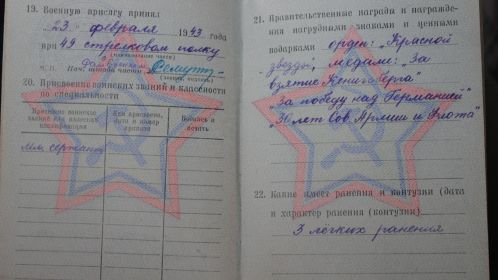 19. Военную присягу принял
23 февраля 1943 года
при 49 стрелковом полку
М. П. Нач. штаба части
20. Присвоение воинских званий и классности
по специальности
Присвоено воинское звание или классная квалификация
Кем присвоено, дата и номер приказа
Подпись и печать
Мл. сержант
21. Правительственные награды и награжде-
ния нагрудными знаками и ценными
подарками орден: „Красной
звезды", медали: „За
взятие Кенигсберга"
„За победу над Германией"
„30 лет Сов. Армии и Флота"
22. Какие имеет ранения и контузии (дата
и характер ранения (контузии)
3 легких ранения